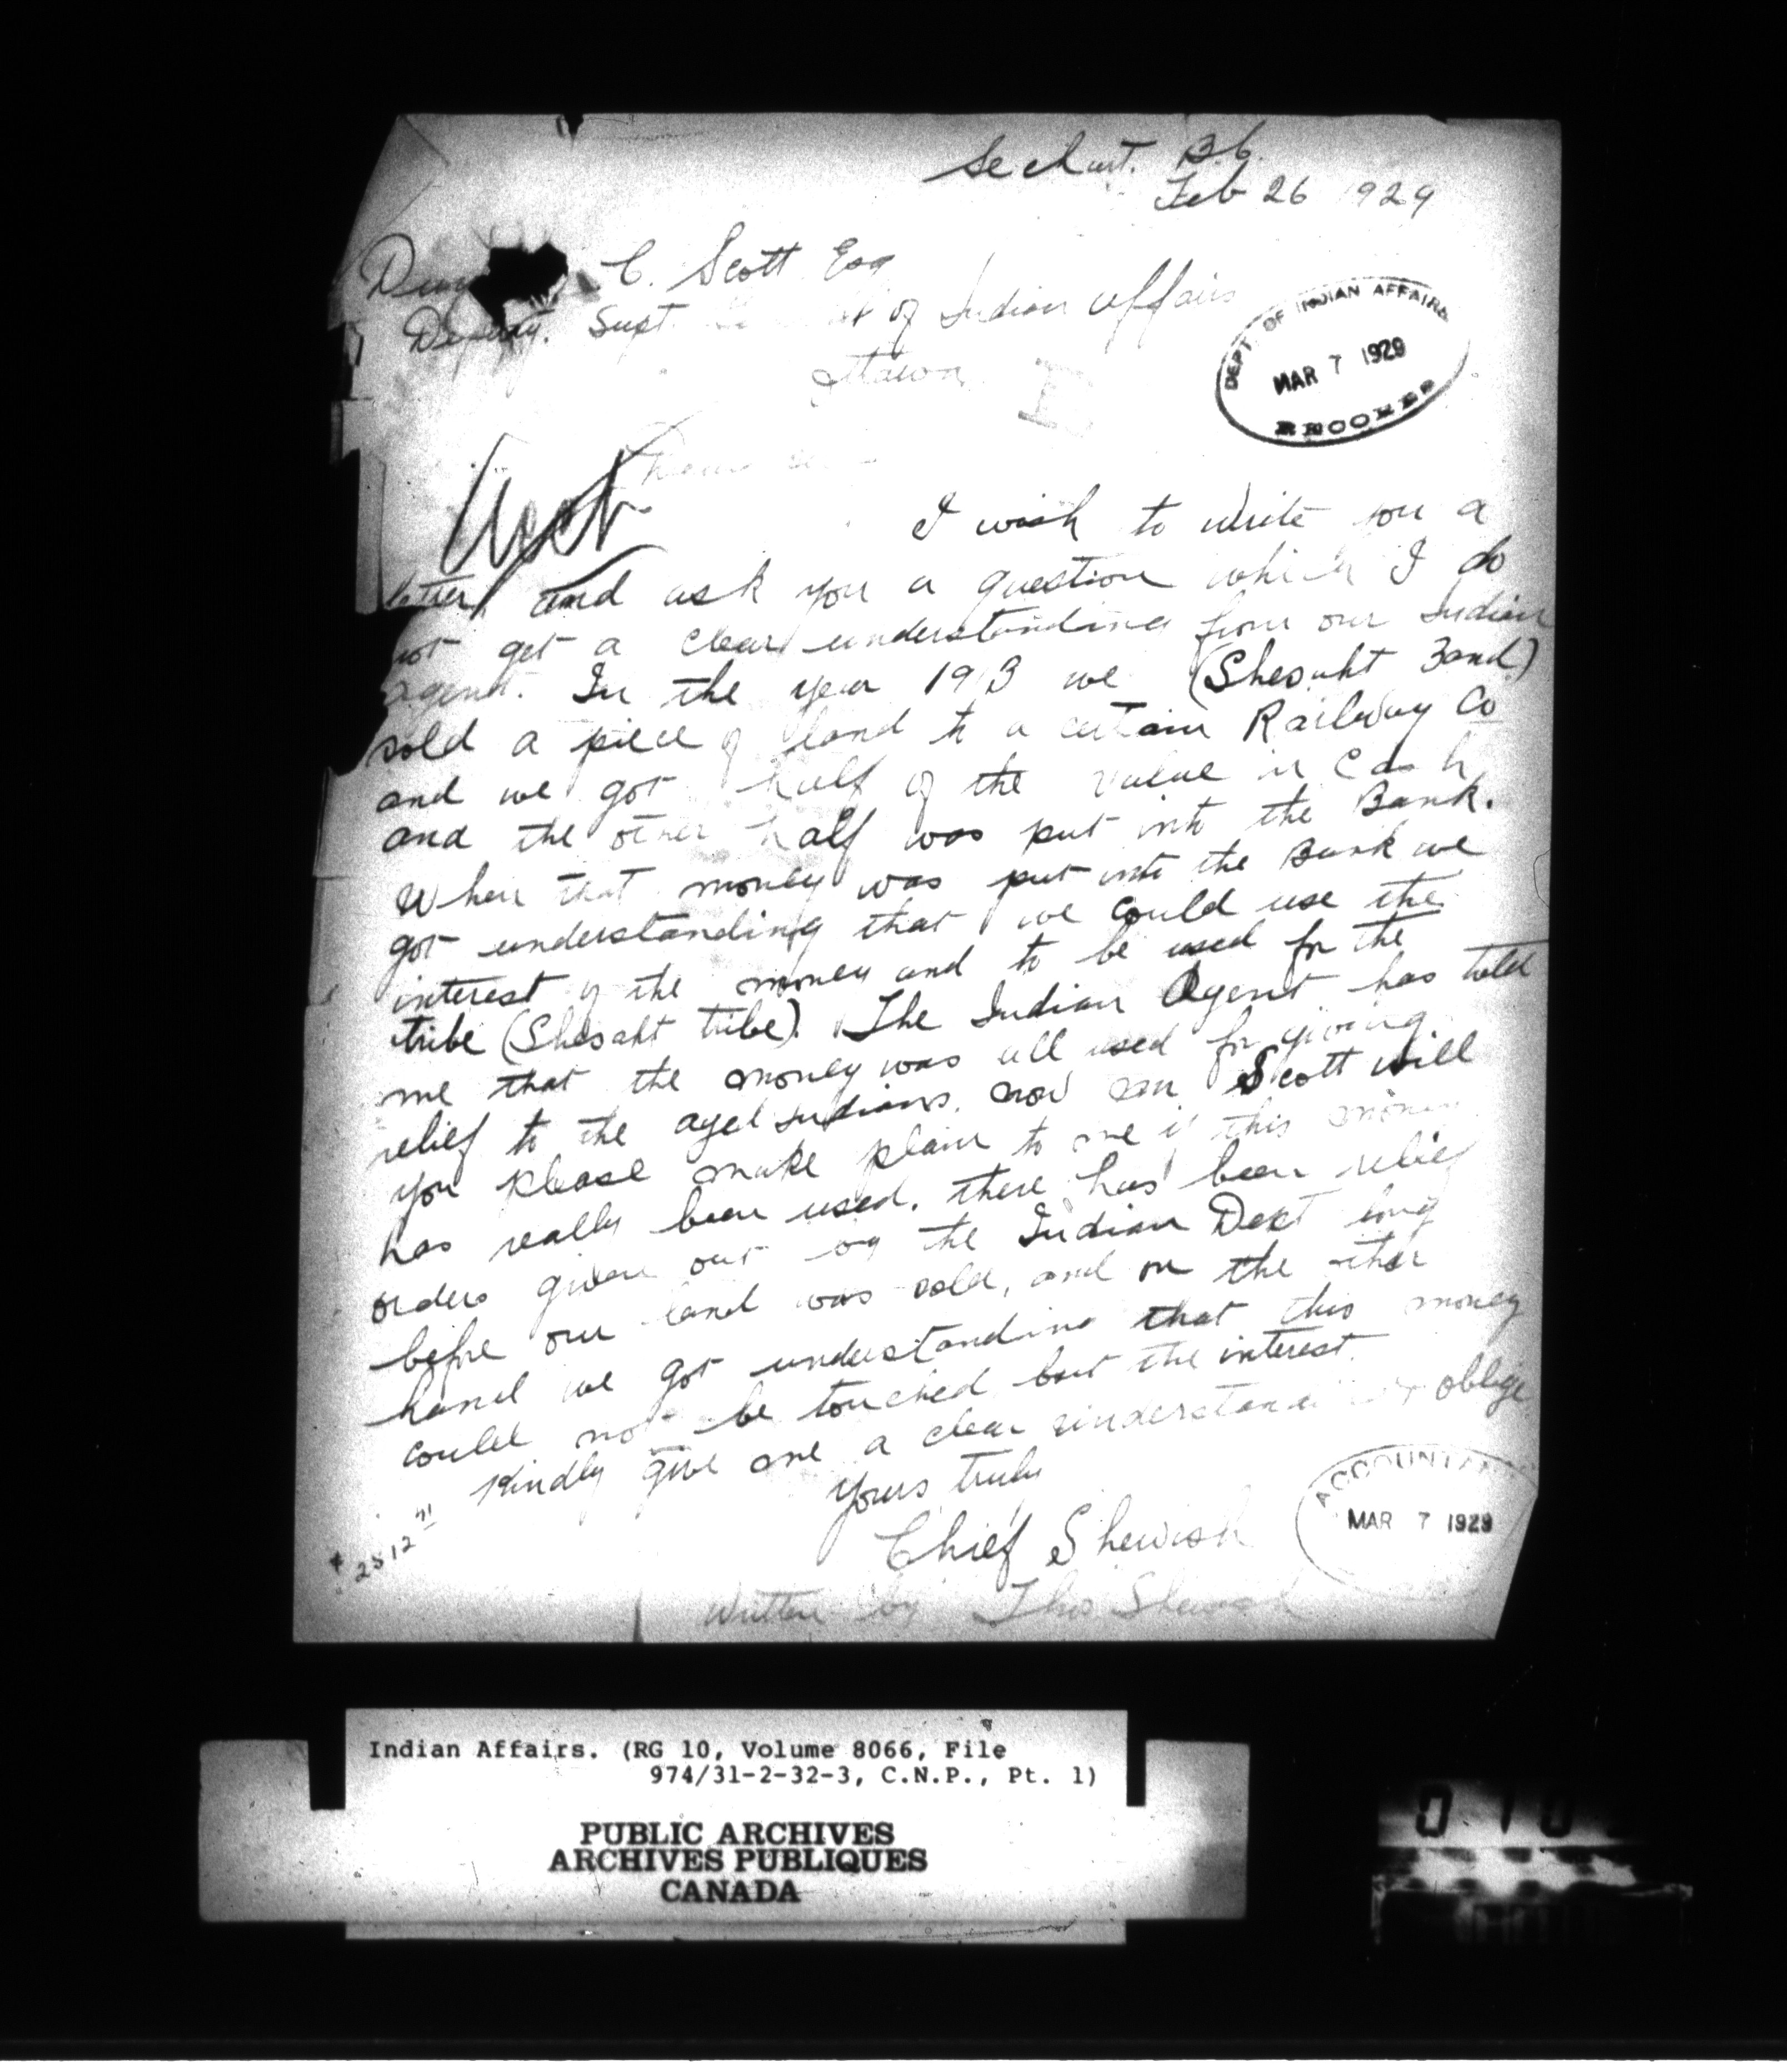 Sechart. B.C.
Feb 26 1929
C. Scott Esq
Deputy. Supt. of Indian Affairs
Ottawa
DEPT. OF INDIAN AFFAIRS
MAR 7 1929
RECORDS
Dear Sir
Acct
I wish to write you a
letter and ask you a question which I do
not get a clear understanding from our Indian
Agent. In the year 1913 we (Shesaht Band)
sold a piece of land to a certain Railway Co
and we got half of the value in Cash
and the other half was put into the Bank.
When that money was put into the Bank we
got understanding that we could use the
interest of the money and to be used for the
tribe (Shesaht tribe). The Indian Agent has told
me that the money was all used for giving
relief to the aged Indians. now Scott will
you please make plain to me if this money
has really been used. there has been relief
orders given out by the Indian Dept long
before our land was sold, and on the other
hand we got understanding that this money
could not be touched but the interest.
Kindly give me a clear understanding & oblige
Yours truly
Chief Shewish
Written by Thos Shewish
ACCOUNTANT
MAR 7 1929
Indian Affairs. (RG 10, Volume 8066, File
974/31-2-32-3, C.N.P., Pt. 1)
PUBLIC ARCHIVES
ARCHIVES PUBLIQUES
CANADA